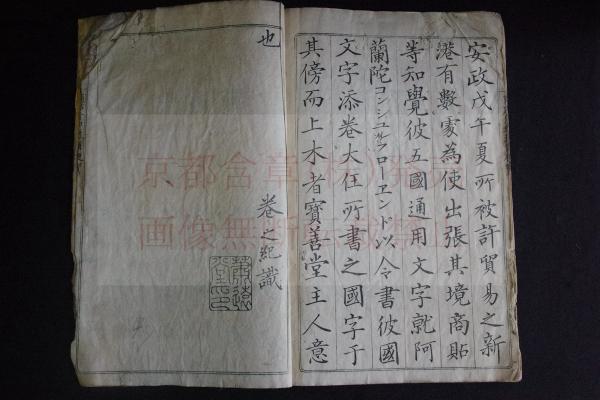 安政戊午夏所被許貿易之新
港有數處為使出張其境商賈
等知覺彼五國通用文字就阿
蘭陀コンシュルクローエンド以令書彼國
文字添卷大任所書之國字于
其傍而上木者寶善堂主人意
也
卷之紀識
京都含章(株)発元
画像無断転載禁止